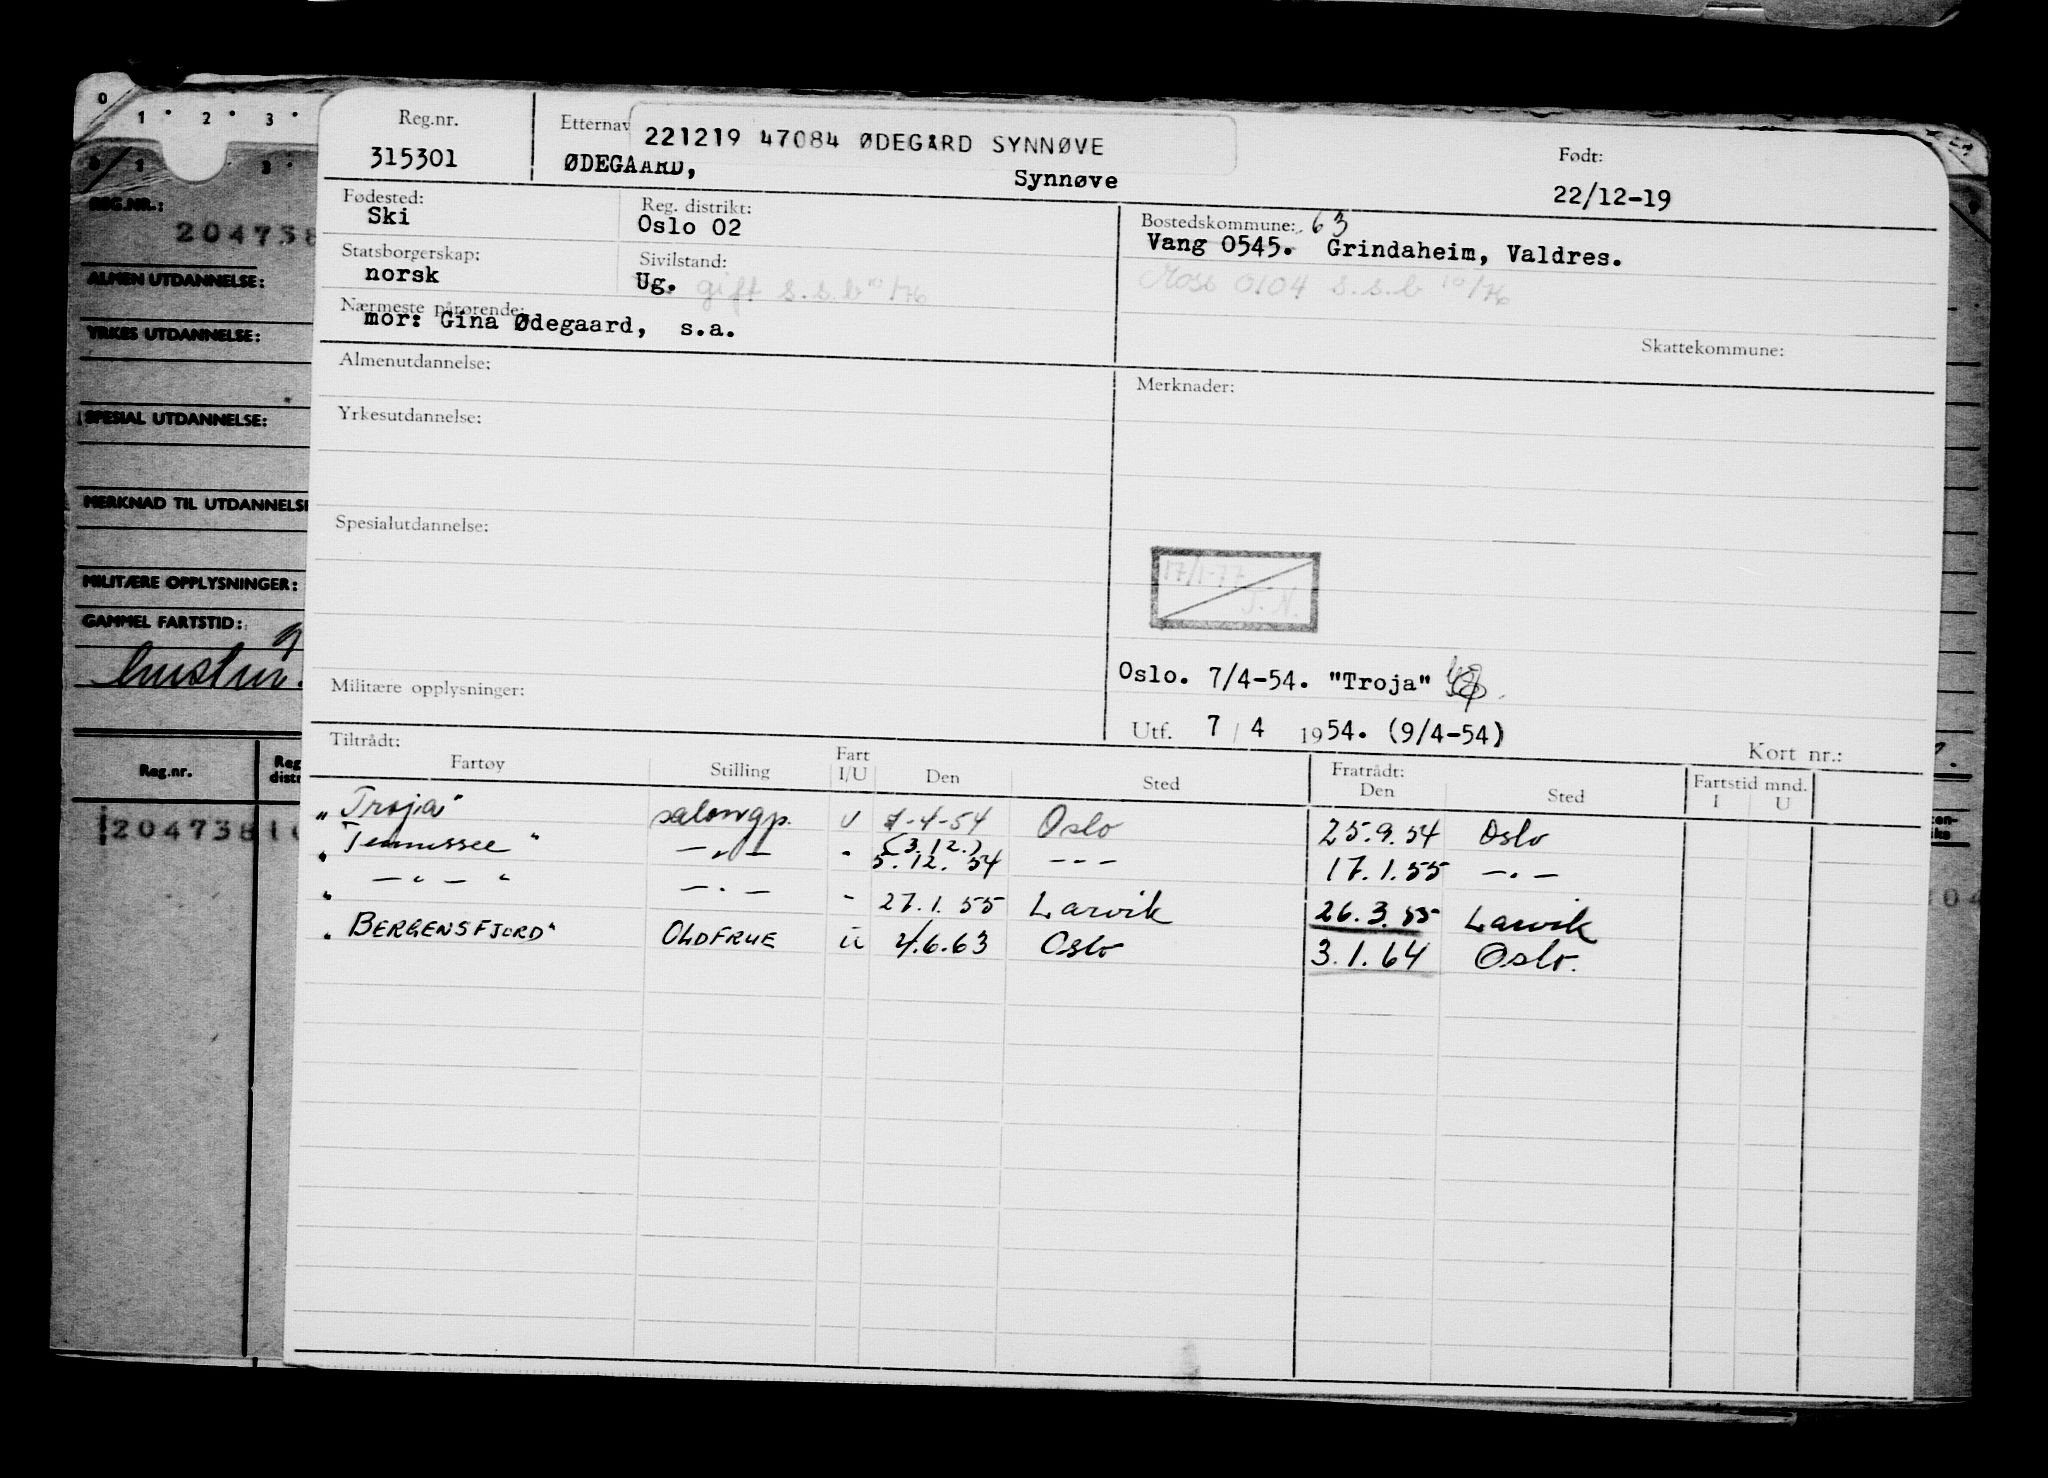 0 1 2 3
Reg.nr. Etternav 221219 47084 ØDEGÅRD SYNNØVE Født:
315301 ØDEGAARD, Synnøve 22/12-19
Fødested: Reg. distrikt: Bostedskommune: 63
Ski Oslo 02 Vang 0545. Grindaheim, Valdres.
Statsborgerskap: Sivilstand:
norsk Ug. gift s.s.b 10/76 Moss 0104 s.s.b 10/76
Nærmeste pårørende:
mor: Gina Ødegaard, s.a. Skattekommune:
Almenutdannelse: Merknader:
Yrkesutdannelse:
Spesialutdannelse:
17/1-77
J. N.
Oslo. 7/4-54. "Troja"
Militære opplysninger:
Utf. 7 / 4 1954. (9/4-54)
Tiltrådt: Kort nr.:
Fartøy Stilling Fart I/U Den Sted Fratrådt: Den Sted Fartstid mnd. I U
"Troja" salongp. U 7-4-54 Oslo 25.9.54 Oslo
"Tennessee" — " — " (3.12.) 5.12.54 — " — 17.1.55 — " —
" — " — " — " — " 27.1.55 Larvik 26.3.55 Larvik
"BERGENSFJORD" OLDFRUE U 4.6.63 Oslo 3.1.64 Oslo.
REG.NR.:
204738
ALMEN UTDANNELSE:
YRKES UTDANNELSE:
SPESIAL UTDANNELSE:
MERKNAD TIL UTDANNELSE
MILITÆRE OPPLYSNINGER:
GAMMEL FARTSTID:
Reg.nr. Reg. distr
204738